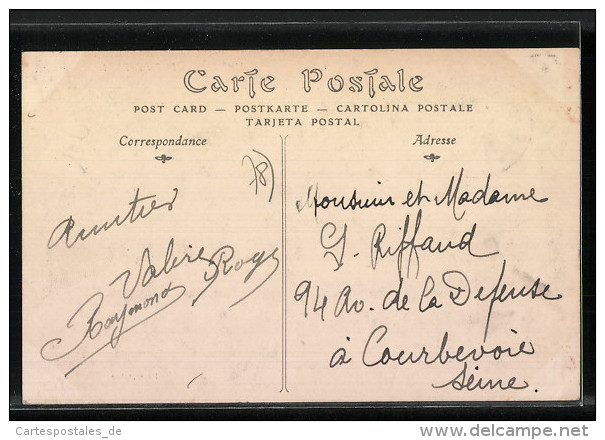 Carte Postale
POST CARD — POSTKARTE — CARTOLINA POSTALE
TARJETA POSTAL
Correspondance
Adresse
78)
Amitiés
Valérie Roger
Raymond
Monsieur et Madame
G. Riffaud
94 Av. de la Défense
à Courbevoie
Seine.
Cartespostales_de
www.delcampe.net